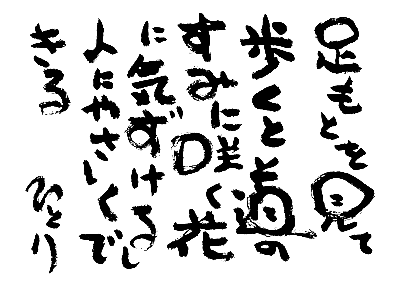 足もとを見て
歩くと道の
すみに咲く花
に気ずけるし
人にやさしくで
きる　ひとり